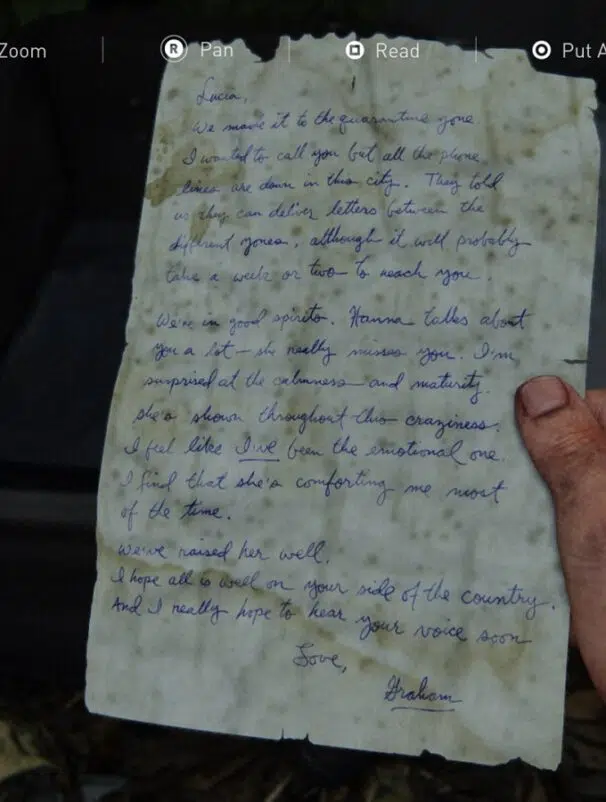 Zoom R Pan Read Put A
Lucia,
We made it to the quarantine zone.
I wanted to call you but all the phone
lines are down in this city. They told
us they can deliver letters between the
different zones, although it will probably
take a week or two to reach you.
We're in good spirits. Hanna talks about
you a lot - she really misses you. I'm
surprised at the calmness and maturity
she's shown throughout this craziness.
I feel like I've been the emotional one.
I find that she's comforting me most
of the time.
We've raised her well.
I hope all is well on your side of the country.
And I really hope to hear your voice soon
Love,
Graham